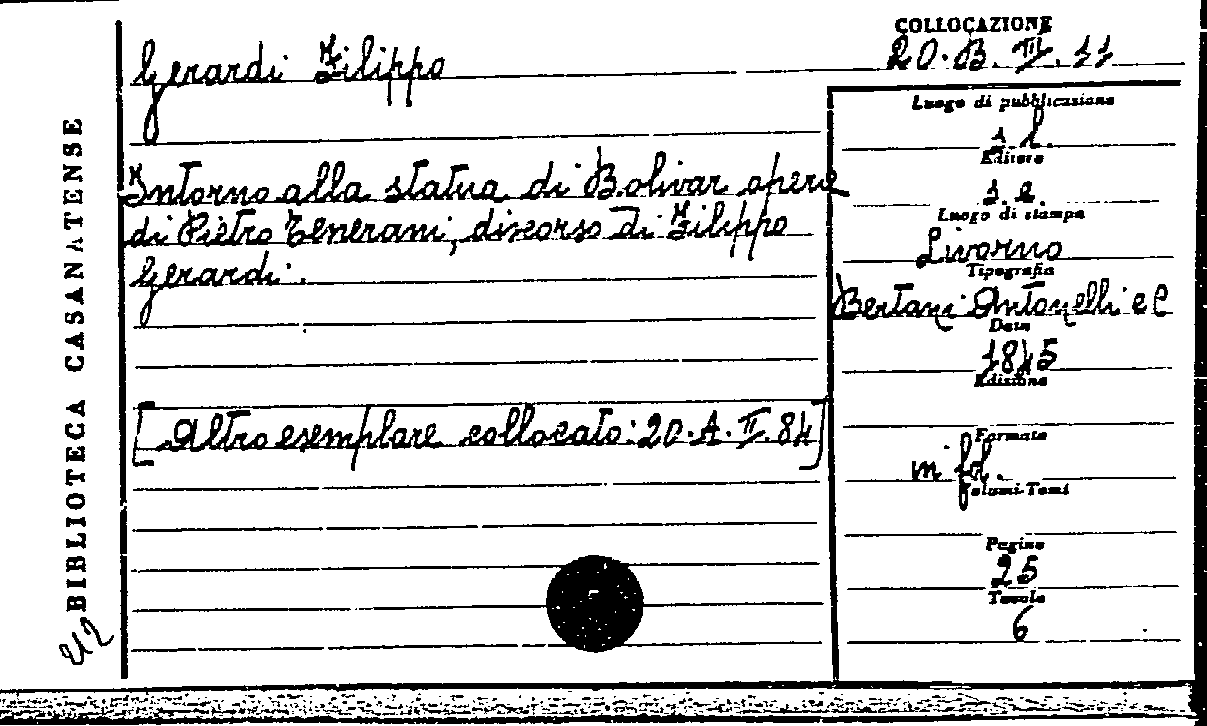 COLLOCAZIONE
Gerardi Filippo
20. B. II. 11
Intorno alla statua di Bolivar opera
di Pietro Tenerani, discorso di Filippo
Gerardi.
[Altro esemplare collocato: 20. A. II. 84]
Luogo di pubblicazione
s. l.
Editore
s. e.
Luogo di stampa
Livorno
Tipografia
Bertani Antonelli e C
Data
1845
Edizione
Formato
in fol.
Volumi-Tomi
Pagine
25
Tavole
6
BIBLIOTECA CASANATENSE